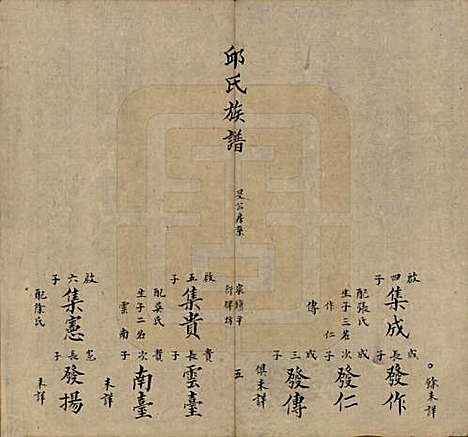 餘未詳
啟四子 集成 配張氏 生子三名作仁傳
成長子 發作
成次子 發仁
成三子 發傳 俱未詳
邱氏族譜
五
啟五子 集貴 配吳氏 生子二名雲南
貴長子 雲臺
貴次子 南臺 未詳
啟六子 集憲 配徐氏
憲長子 發揚 未詳